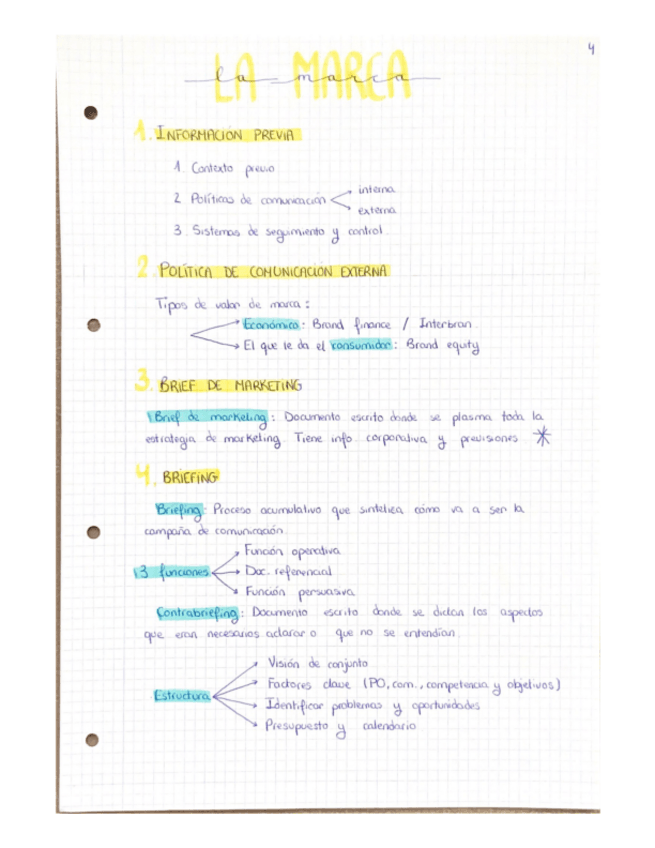 4
LA MARCA
la marca
1. INFORMACIÓN PREVIA
1. Contexto previo
2. Políticas de comunicación
interna
externa
3. Sistemas de seguimiento y control.
2. POLÍTICA DE COMUNICACIÓN EXTERNA
Tipos de valor de marca:
Económico: Brand finance / Interbran.
El que le da el consumidor: Brand equity
3. BRIEF DE MARKETING
Brief de marketing: Documento escrito donde se plasma toda la
estrategia de marketing. Tiene info corporativa y previsiones *
4. BRIEFING
Briefing: Proceso acumulativo que sintetiza cómo va a ser la
campaña de comunicación
3 funciones
Función operativa
Doc. referencial
Función persuasiva
Contrabriefing: Documento escrito donde se dictan los aspectos
que eran necesarios aclarar o que no se entendían.
Estructura
Visión de conjunto
Factores clave (PO, com., competencia y objetivos)
Identificar problemas y oportunidades
Presupuesto y calendario